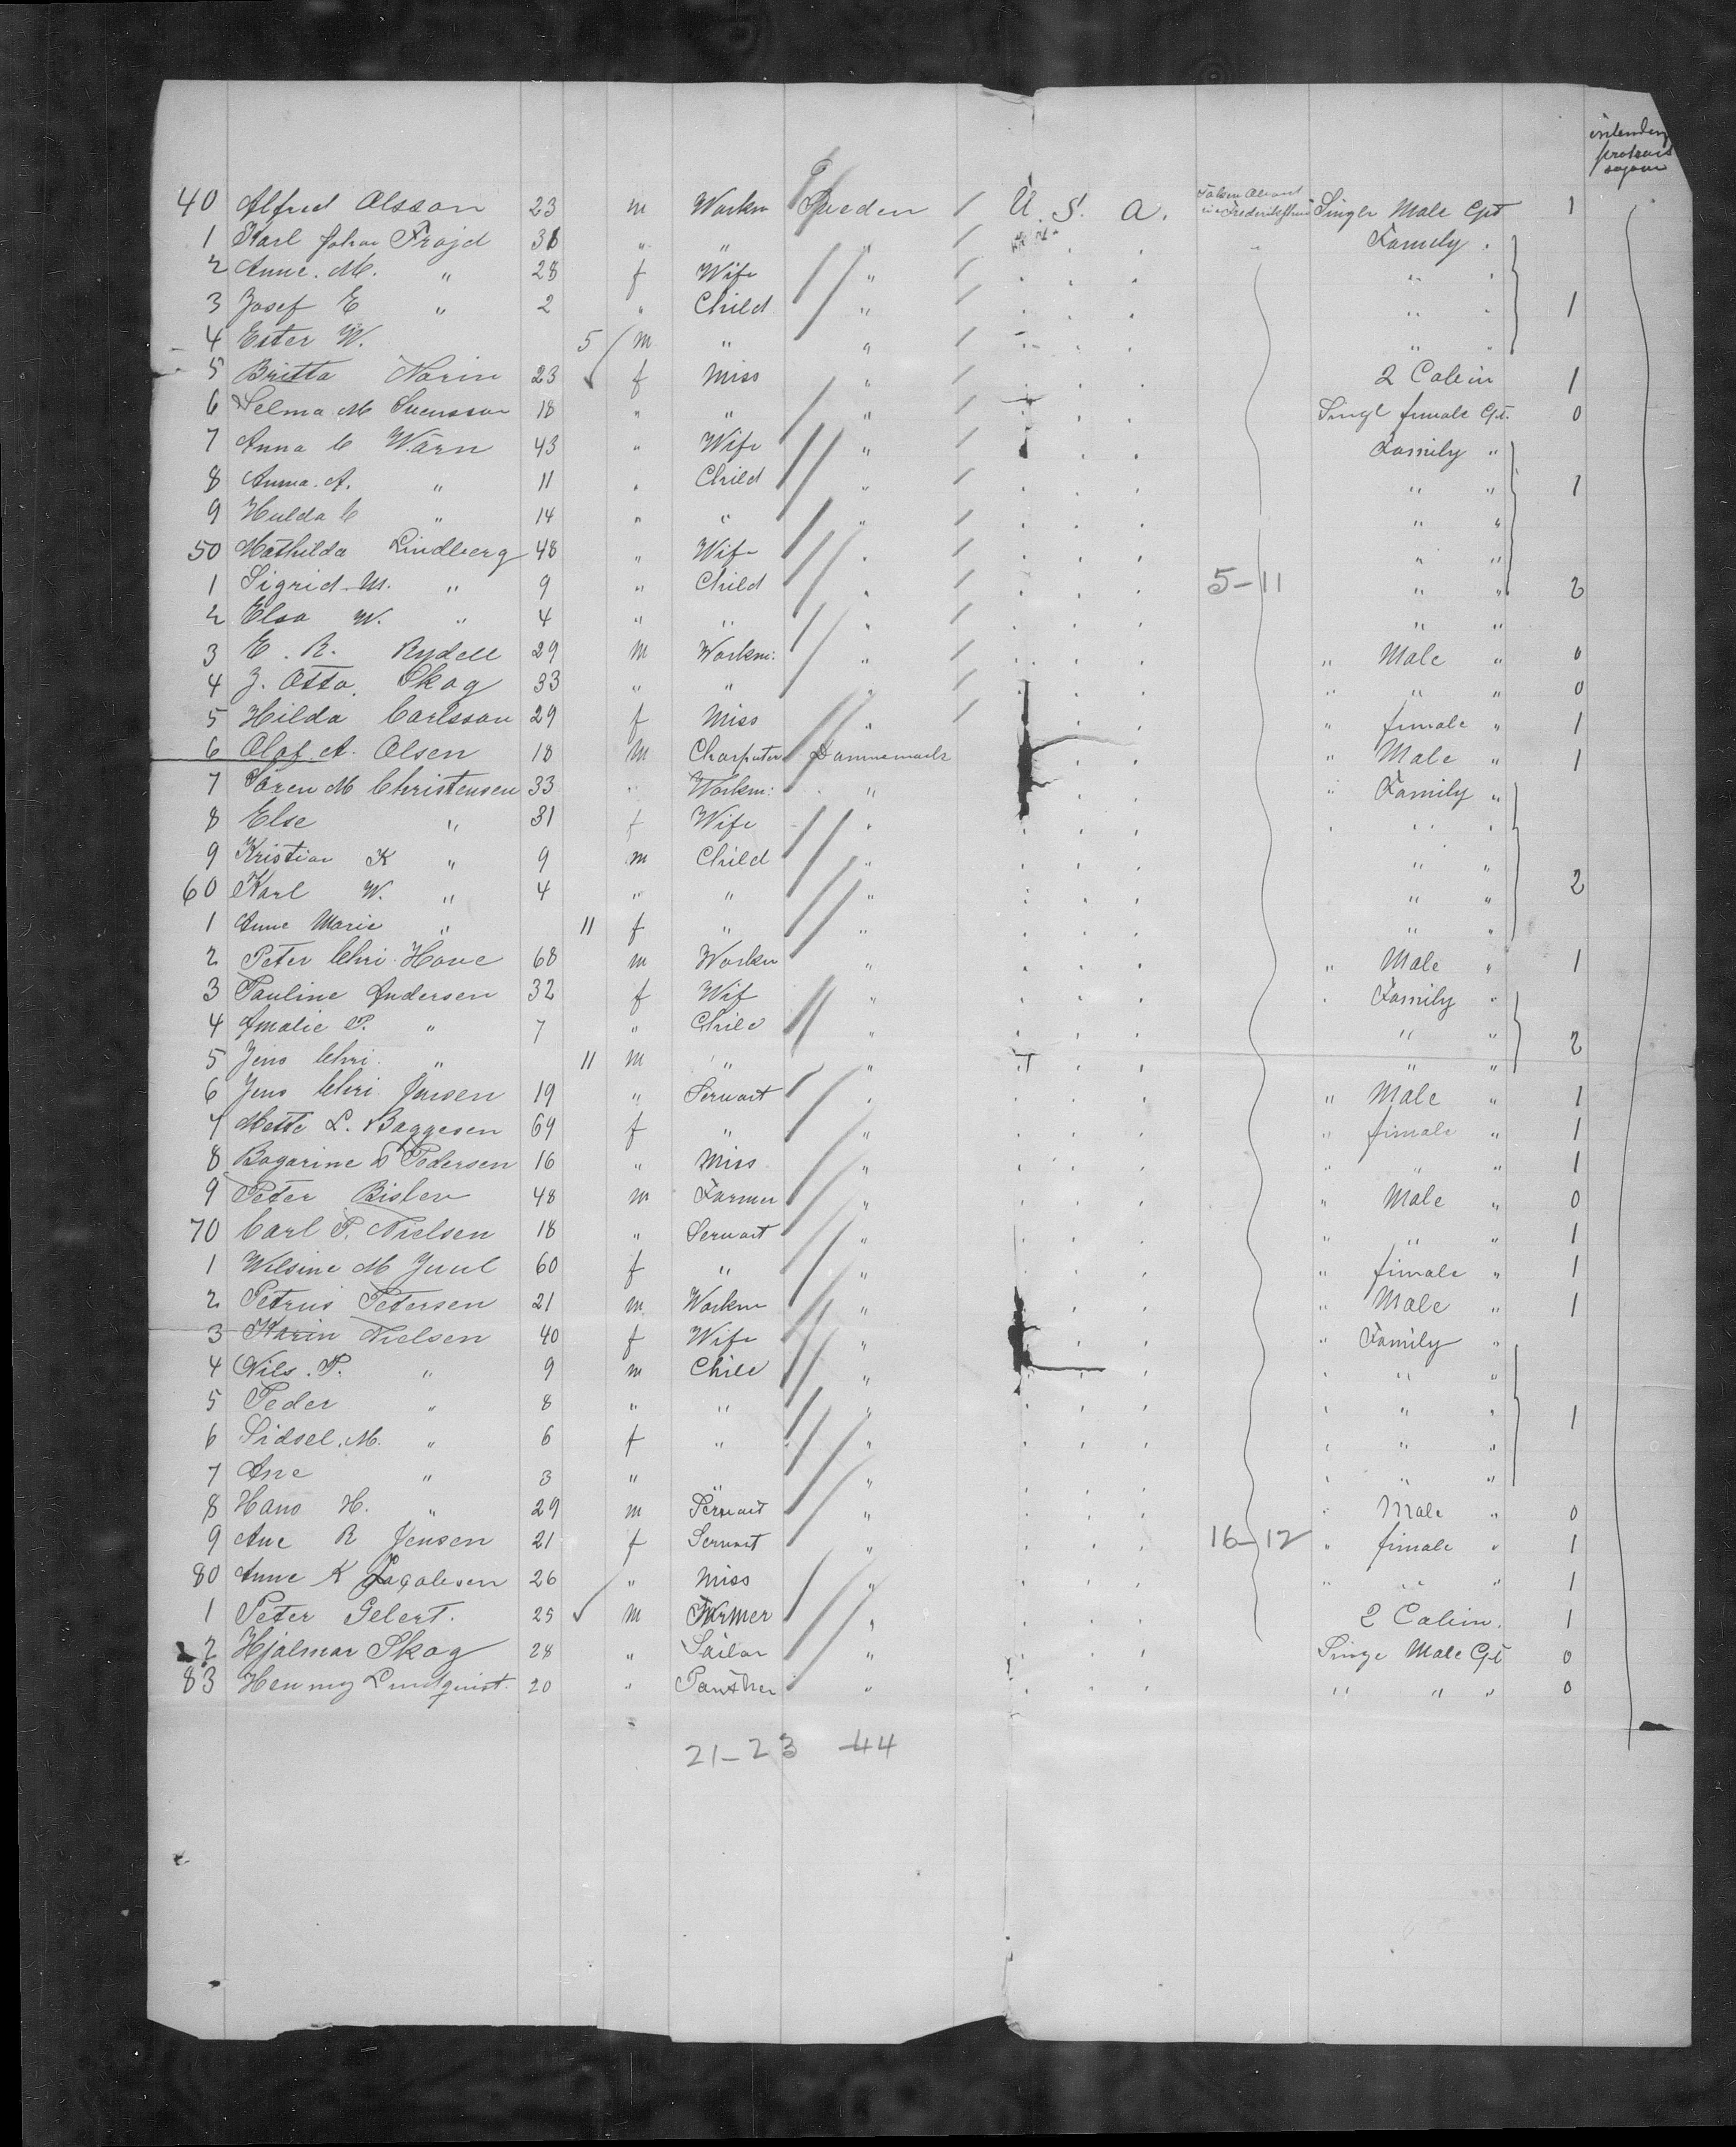 intending protrait sojourn
40 Alfred Olsson 23 m Workm Sweden / U. S. A. Taken Aboard in Frederikshavn Single Male Cpt 1
1 Karl Johan Frojd 38 " " " / Family .
2 Anne. M. " 28 f Wife " / " .
3 Josef E " 2 " Child " / " . 1
4 Ester W. 5 m " " / " .
5 Britta Norin 23 f Miss " / 2 Cabin 1
6 Selma M Svensson 18 " " " / Singl female Cpt. 0
7 Anna C Wärn 43 " Wife " / Family "
8 Anna. A. " 11 " Child " / " " 1
9 Hulda C " 14 " " " / " "
50 Mathilda Lindberg 48 " Wife " / " "
1 Sigrid M. " 9 " Child " / 5-11 " " 2
2 Elsa W. " 4 " " " / " "
3 E. R. Rydell 29 m Workm: " / " Male " 0
4 J. Otto. Skog 33 " " " / " " " 0
5 Hilda Carlsson 29 f Miss " / " female " 1
6 Olaf A. Olsen 18 m Charpnter Dannemark " Male " 1
7 Sören M Christensen 33 " Workm: " " Family "
8 Else " 31 f Wife " " " "
9 Kristian K " 9 m Child " " "
60 Karl W. " 4 " " " " " 2
1 Anne Marie " 11 f " " " "
2 Peter Chri. Hove 68 m Workm " " Male " 1
3 Pauline Andersen 32 f Wif " " Family "
4 Amalie P. " 7 " Chile " " " 2
5 Jens Chri. " 11 m " " " "
6 Jens Chri Jensen 19 " Servant " " Male " 1
7 Mette L. Baggesen 69 f " " " fimale " 1
8 Bogarine D Pedersen 16 " Miss " " " " 1
9 Peter Bislev 48 m Farmer " " Male " 0
70 Carl P. Nielsen 18 " Servant " " " " 1
1 Wilsine M Juul 60 f " " " fimale " 1
2 Petrus Petersen 21 m Workm " " Male " 1
3 Karin Nielsen 40 f Wife " " Family "
4 Nils. P. " 9 m Chile " " " "
5 Peder " 8 " " " " " " 1
6 Sidsel. M. " 6 f " " " " "
7 Ane " 3 " " " " " "
8 Hans H. " 29 m Servant " " Male " 0
9 Ane R Jensen 21 f Servant " 16-12 " fimale " 1
80 Anne K Jacobsen 26 " Miss " " " " 1
1 Peter Gelert. 25 m Farmer " 2 Cabin. 1
2 Hjalmar Skog 28 " Sailor " Singe Male Cpt 0
83 Henning Lundquist. 20 " " " " " 0
21-23 -44